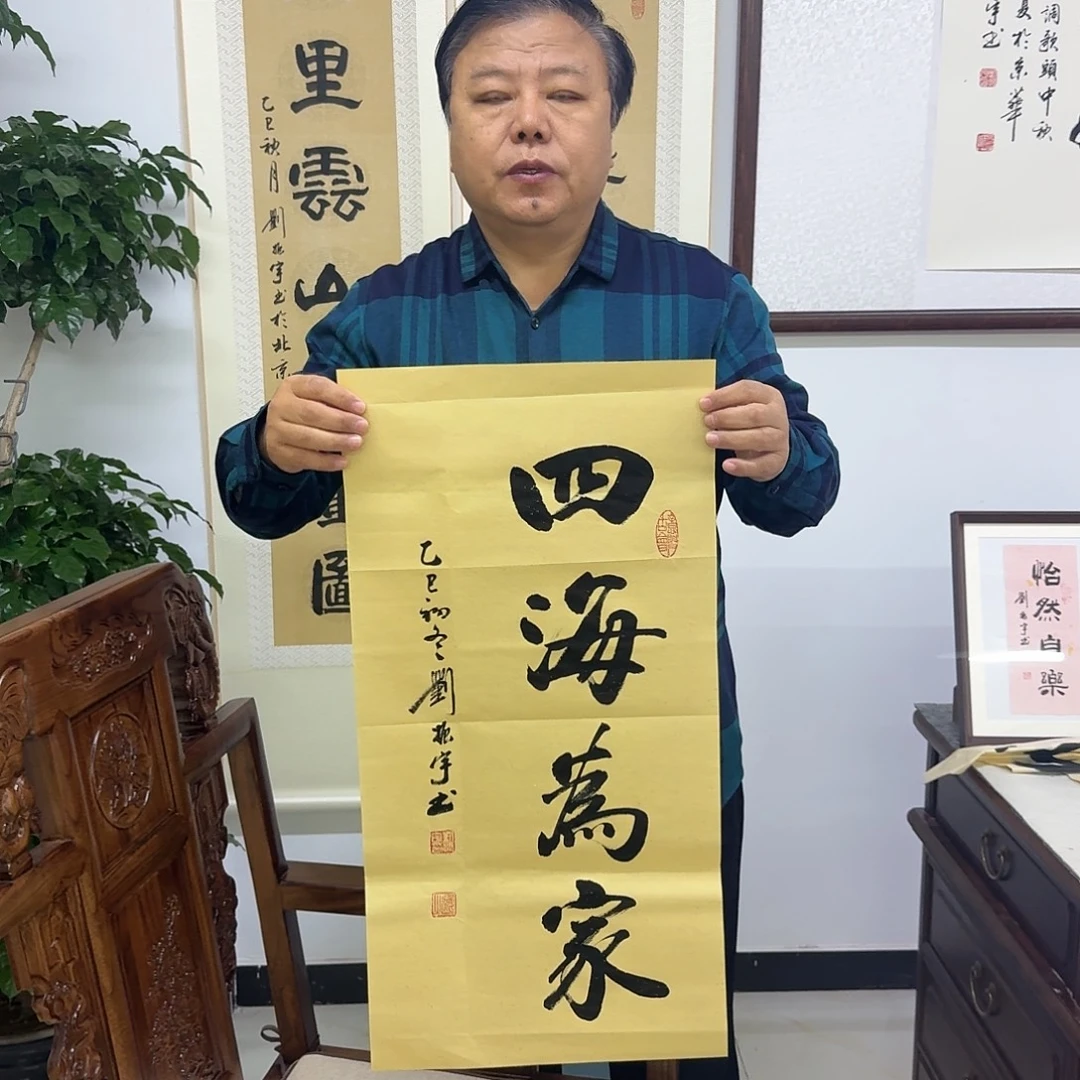 四海為家
乙巳初冬劉振宇书
里雲山
圖
乙巳秋月 劉振宇书於北京
調歌頭中秋
夏於京華
宇书
怡然自樂
劉振宇书